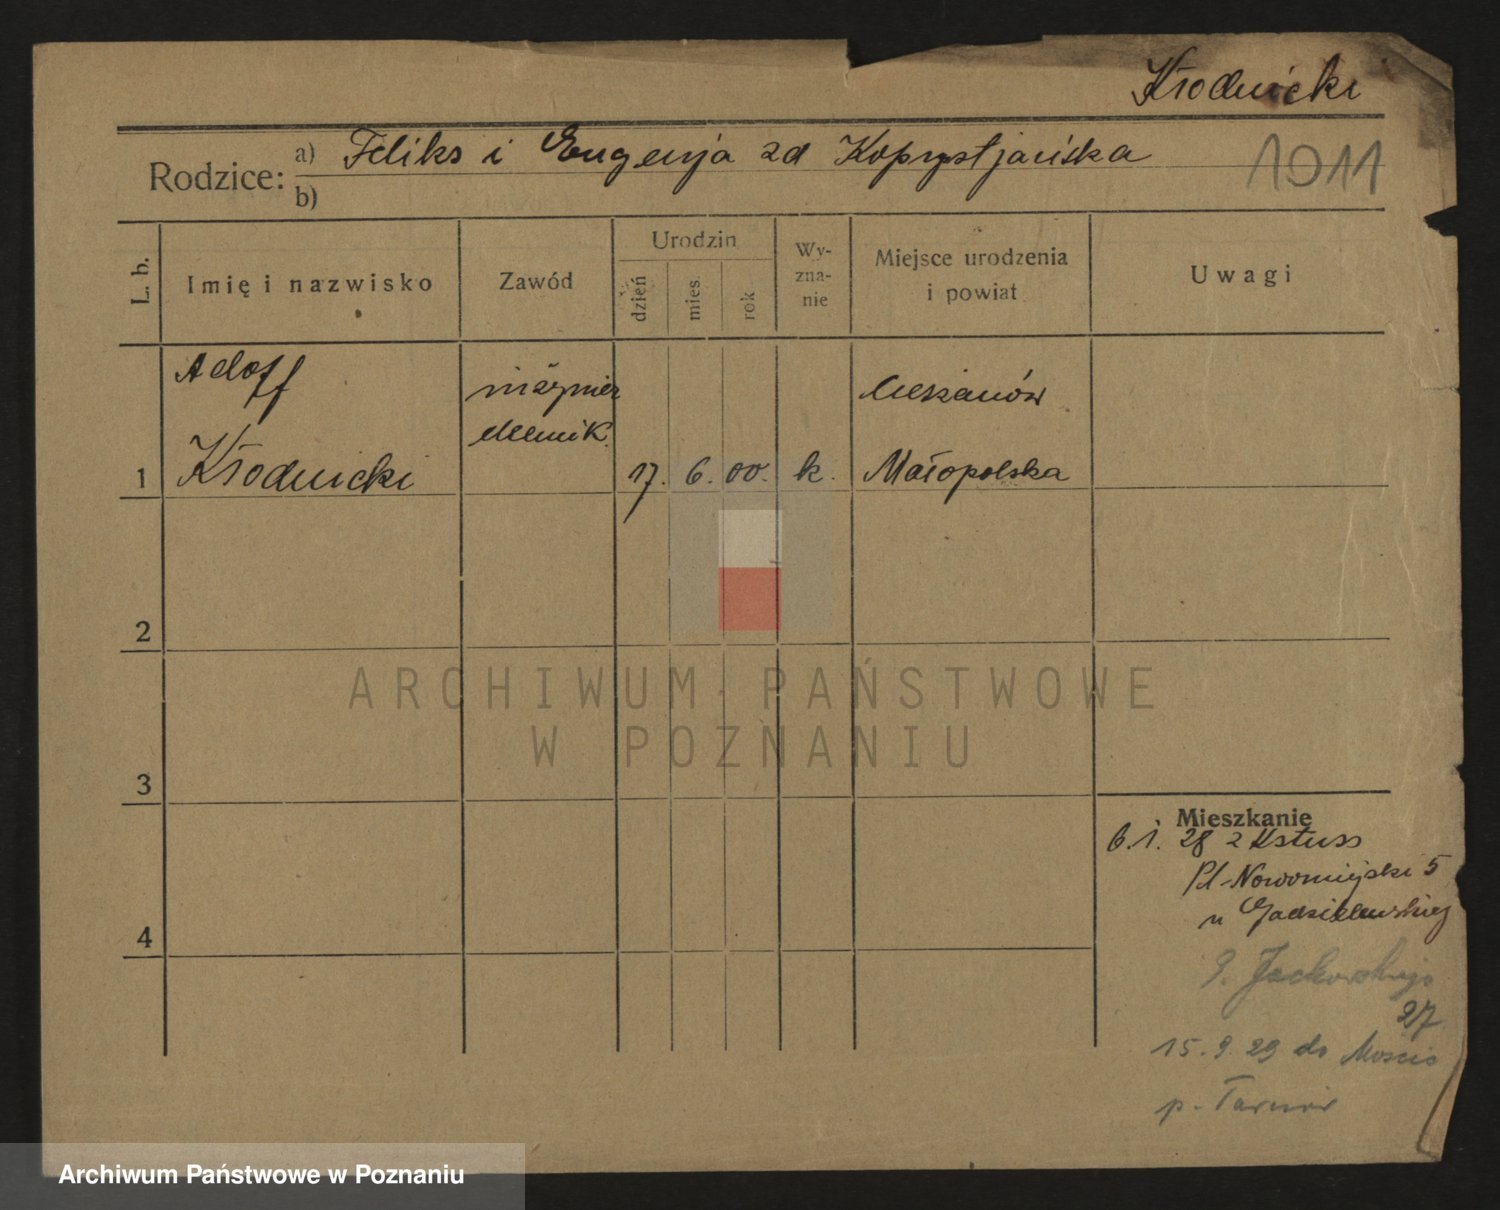 Kłodnicki
Rodzice:
a) Feliks i Eugenja zd Kopystjańska
b)
1911
L. b.
Imię i nazwisko
Zawód
Urodzin
dzień
mies.
rok
Wy-
zna-
nie
Miejsce urodzenia
i powiat
Uwagi
Adolf
inżynier
Cieszanów
chemik
1 Kłodnicki 17. 6. 00. k. Małopolska
2
3
4
Mieszkanie
6.1. 28 z
Pl. Nowomiejski 5
u
9. Jackowskiego
27
15. 9. 29 do Mościc
p. Tarnów
ARCHIWUM PAŃSTWOWE
W POZNANIU
Archiwum Państwowe w Poznaniu